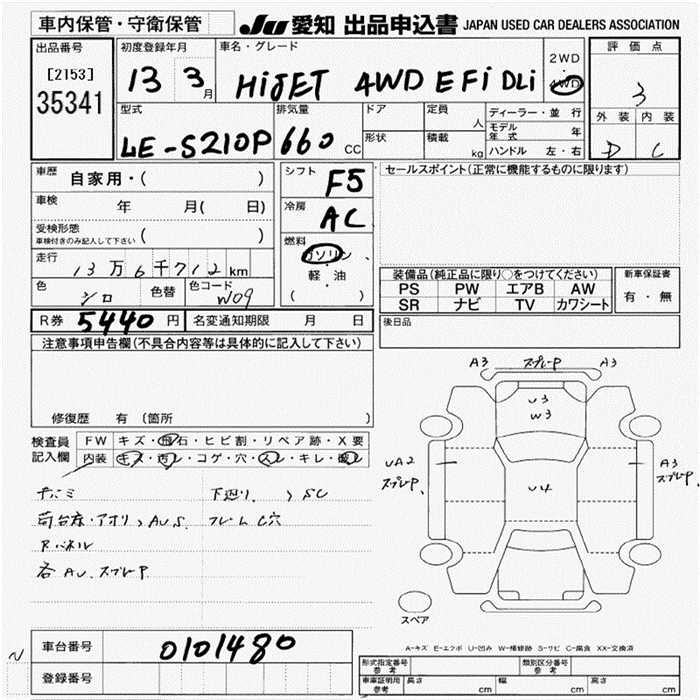 車内保管・守衛保管 JU 愛知 出品申込書 JAPAN USED CAR DEALERS ASSOCIATION
出品番号 初度登録年月 車名・グレード 2WD 評価点
[2153] 13 3月 HiJET 4WD EFi DLi ・4WD 3
35341 外装 内装
型式 排気量 ドア 定員 人 ディーラー・並行 D C
LE-S210P 660 CC 形状 積載 kg モデル年式 年
ハンドル 左・右
車歴 自家用・( ) シフト F5 セールスポイント(正常に機能するものに限ります)
車検 年 月( 日) 冷房 AC
受検形態 ( )
車検付きのみ記入して下さい 燃料
走行 13万6千712km ガソリン、
色 シロ 色替 色コード W09 軽・油
( )
装備品(純正品に限り○をつけてください) 新車保証書
PS PW エアB AW 有・無
SR ナビ TV カワシート
R券 5440円 名変通知期限 月 日 後日品
注意事項申告欄(不具合内容等は具体的に記入して下さい)
修復歴 有(箇所 )
検査員 FW キズ・飛石・ヒビ割・リペア跡・X要
記入欄 内装 キズ・汚レ・コゲ・穴・スレ・キレ・破レ
下廻り、SC
荷台床・アオリ、AU.S. フレームC穴
Rパネル
各AU.スプレーP
A3 スプレーP A3
U3
W3
UA2
スプレーP.
U4
A3
スプレーP.
スペア
A-キズ E-エクボ U-凹み W-補修跡 S-サビ C-腐食 XX-交換済
N 車台番号 0101480
登録番号
形式指定番号 参考 類別区分番号 参考
車庫証明用 参考 長さ cm 幅 cm 高さ cm